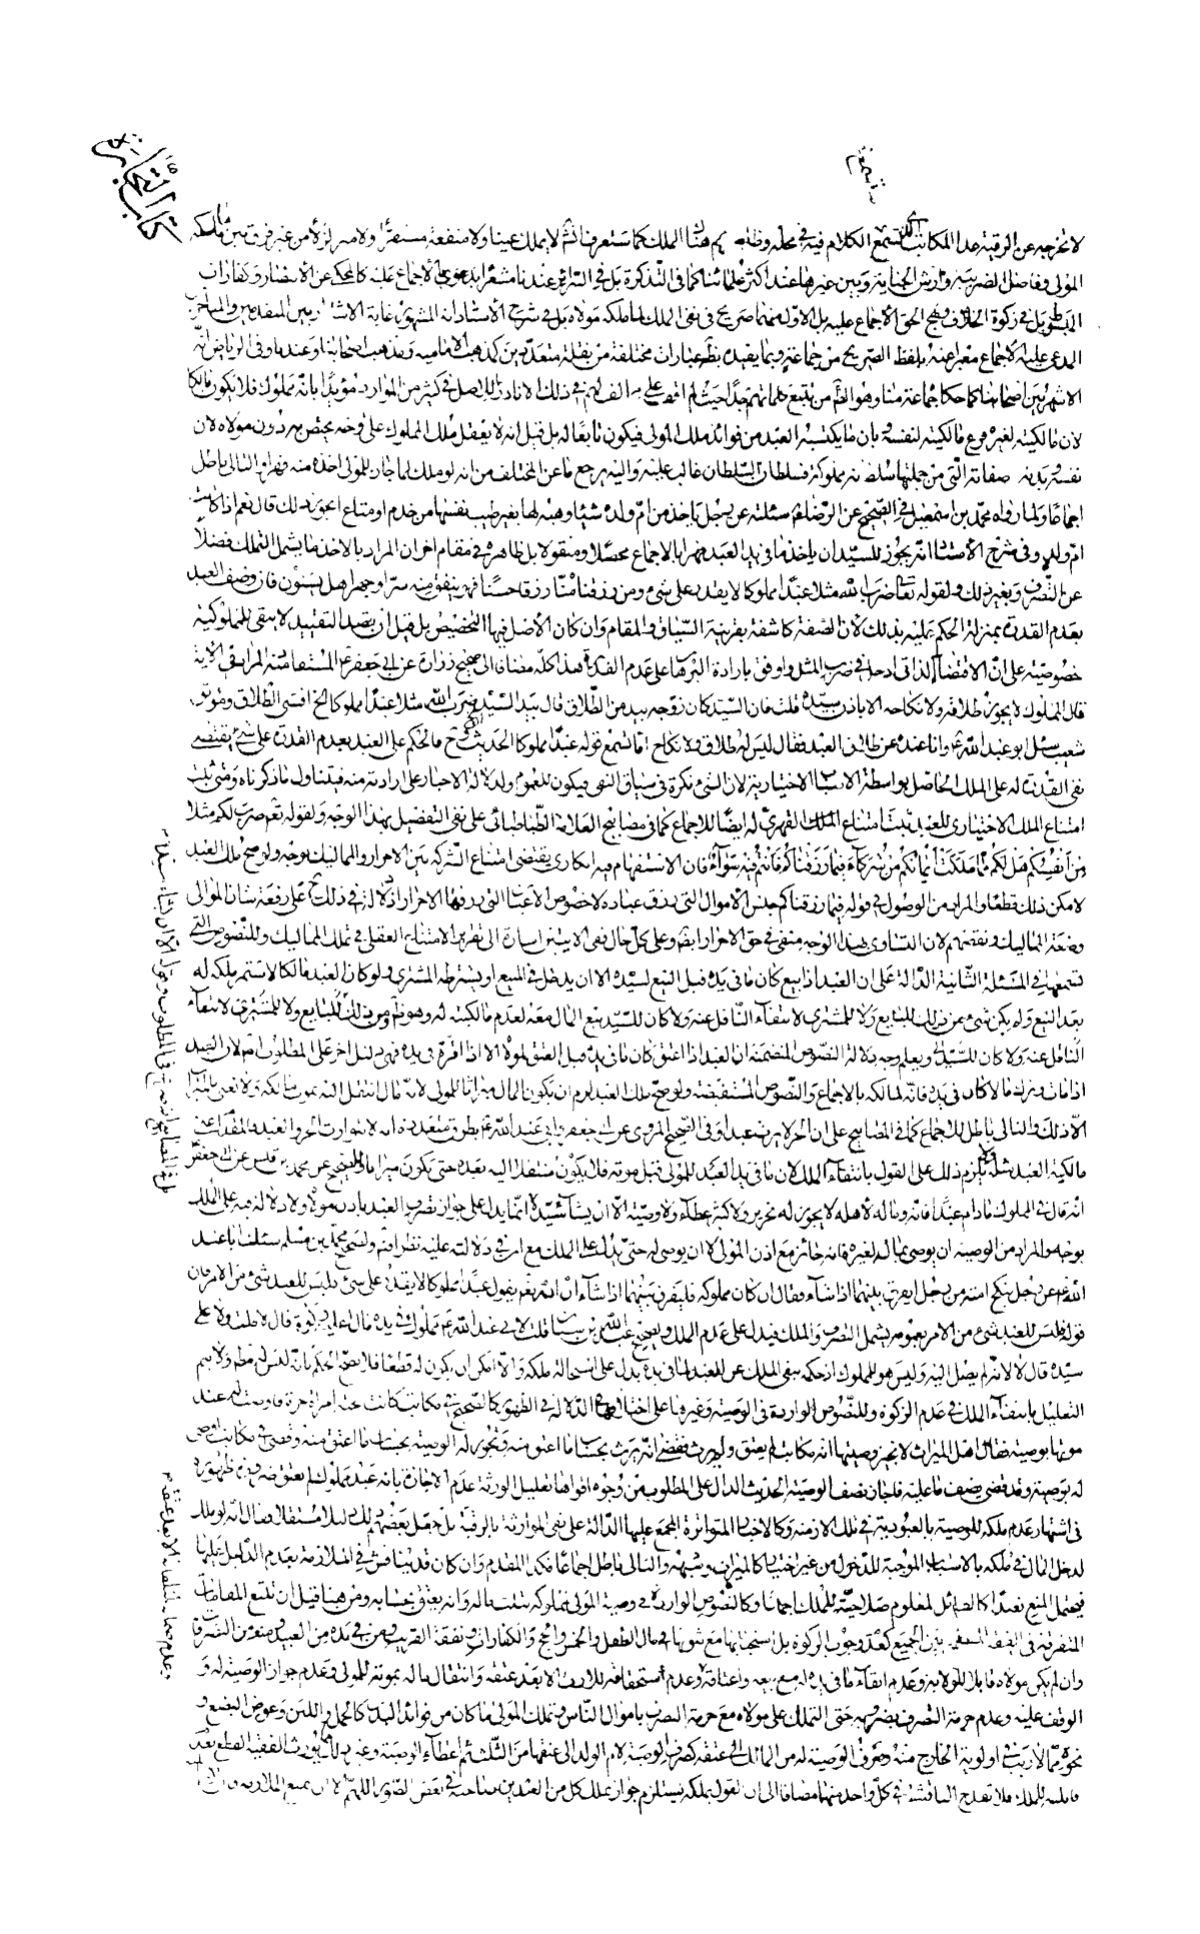 كتاب التجارة
لا تخرجه عن الرقية عدا المكاتب الكلام فيه في محله هناك الملك كما ستعرف انّه لا يملك عينا ولا منفعة ولا من غير فرق بين ما ملكه
المولى وفاضل الضريبة وارش الجناية وبين غيرها عند اكثر علمائنا كما في التذكرة بل في السرائر عندنا مشعرا بدعوى الاجماع عليه كالمحكي عن الانتصار وكفارات
المبسوط بل في زكوة الخلاف ونهج الحق الاجماع عليه بل الاول منهما صريح في نفي الملك لما ملكه مولاه بل في شرح الاستاد انه المشهور غاية الاشتهار بين المتقدمين والمتاخرين
المدعى عليه الاجماع معبرا عنه بلفظ الصريح من جماعة وبما يفيده بظهر عبارات مختلفة من نقلة متعددين كمذهب الامامية ومذهب اصحابنا وعندنا وفي الرياض انه
الاشهر بين اصحابنا كما حكاه جماعة منا وهو الظاهر من تتبع كلماتهم جدا حيث لم اقف على مخالف لهم في ذلك الا نادرا للاصل في كثير من الموارد مؤيدا بانه مملوك فلا يكون مالكا
لان مالكيته لغيره فرع مالكيته لنفسه وبان ما يكتسبه العبد من فوائد ملك المولى فيكون تابعا له بل قيل انه لا يعقل ملك المملوك على وجه يختص به دون مولاه لان
نفسه وبدنه صفاته التي من جملتها سلطنته مملوكة فسلطان السلطان غالب عليه واليه يرجع ما عن المختلف من انه لو ملك لما جاز للمولى اخذه منه قهرا والتالي باطل
اجماعا ولما رواه محمد بن اسمعيل في الصحيح عن الرضا سئلته عن رجل ياخذ من ام ولده شيئا وهبه لها بغير طيب نفسها من خدم او متاع ايجوز ذلك قال نعم اذا كانت
ام ولده وفي شرح الاستاد انه يجوز للسيد ان ياخذ ما في يد العبد قهرا بالاجماع محصلا ومنقولا بل ظاهره في مقام اخر ان المراد بالاخذ ما يشمل التملك فضلا
عن التصرف وبغير ذلك ولقوله تعالى ضرب الله مثلا عبدا مملوكا لا يقدر على شيء ومن رزقناه منا رزقا حسنا فهو ينفق منه سرا وجهرا هل يستوون فان وصف العبد
بعدم القدرة بمنزلة الحكم عليه بذلك لان الصفة كاشفة بقرينة السياق والمقام وان كان الاصل فيها التخصيص بل قيل ان قصد التقييد لا يبقى للمملوكية
خصوصية على ان الاقتضاء الذاتي ادخل في ضرب المثل واوفق بارادة البرهان على عدم القدرة هذا كله مضافا الى صحيح زرارة عن ابي جعفر المستفاد منه المراد في الاية
قال المملوك لا يجوز طلاقه ولا نكاحه الا باذن سيده قلت فان السيد كان زوجه بيد من الطلاق قال بيد السيد ضرب الله مثلا عبدا مملوكا الخ افشي الطلاق وموثق
شعيب سئل ابو عبد الله وانا عنده عن طلاق العبد فقال ليس له طلاق ولا نكاح اما تسمع قوله عبدا مملوكا الحديث وح فالحكم على العبد بعدم القدرة على شيء يقتضي
نفي القدرة له على الملك الحاصل بواسطة الاسباب الاختيارية لان الشيء نكرة في سياق النفي فيكون للعموم ولدلالة الاخبار على ارادته منه فيتناول ما ذكرناه ومتى ثبت
امتناع الملك الاختياري للعبد ثبت امتناع الملك القهري له ايضا للاجماع كما في مصابيح العلامة الطباطبائي على نفي التفصيل بهذا الوجه ولقوله تعالى ضرب لكم مثلا
من انفسكم هل لكم مما ملكت ايمانكم من شركاء فيما رزقناكم فانتم فيه سواء فان الاستفهام فيه انكاري يقتضي امتناع الشركة بين الاحرار والمماليك بوجه ولو صح ملك العبد
لامكن ذلك قطعا والمراد من الموصول في قوله فيما رزقناكم جنس الاموال التي رزق عباده لا خصوص الاعيان التي رزقها الاحرار اذ لا دلالة في ذلك على رفعة شان الموالي
وضعة المماليك ونقصهم لان التساوي بهذا الوجه منتفي في حق الاحرار ايضا وعلى كل حال نفي الاية اشارة الى تقرير الامتناع العقلي في تملك المماليك وللنصوص التي
تسمعها في المسئلة الثانية الدالة على ان العبد اذا بيع كان ما في يده قبل البيع لسيده الا ان يدخل في المبيع او يشترطه المشتري ولو كان العبد مالكا لاستمر ملكه له
بعد البيع ولم يكن شيء من ذلك للبايع ولا للمشتري لانتفاء الناقل عنه ولا كان للسيد بيع المال معه لعدم مالكيته له وهو
الناقل عنه ولا كان للسيد ويعلم وجه دلالة النصوص المتضمنة ان العبد اذا اعتق كان ما في يده قبل العتق لمولاه الا اذا اقره في يده فهي دليل اخر على المطلوب لان العبد
اذا مات وترك مالا كان في يده فانه لمالكه بالاجماع والنصوص المستفيضة ولو صح ملك العبد لزم ان يكون المال ميراثا للمولى لانه مال انتقل اليه بموت مالكه ولا نعني بالميراث
الا ذلك والتالي باطل للاجماع كما في المصابيح على ان الحر لا يرث عبدا وفي الصحيح المروي عن ابي جعفر وابي عبد الله بطرق متعددة انه لا يتوارث الحر والعبد
مالكية العبد يلزم ذلك على القول بانتفاء الملك لان ما في يد العبد للمولى قبل موته فلا يكون منتقلا اليه بعده حتى يكون ميراثا وللصحيح عن محمد بن قيس عن ابي جعفر
انه قال في المملوك ما دام عبدا فانه وماله لاهله لا يجوز له تحرير ولا كثير عطاء ولا وصية الا ان يشاء سيده انما يدل على جواز تصرف العبد باذن مولاه ولا دلالة فيه على الملك
بوجه والمراد من الوصية ان يوصي بمال لغيره فانه جائز مع اذن المولى لا ان يوصى له حتى يدل على الملك مع ان في دلالته عليه نظر ولصحيح محمد بن مسلم سئلت ابا عبد
الله عن رجل ينكح امته من رجل ايفرق بينهما اذا شاء فقال ان كان مملوكه فليفرق بينهما اذا شاء ان الله تعالى يقول عبدا مملوكا لا يقدر على شيء فليس للعبد شيء من الامر فان
قوله فليس للعبد شيء من الامر بعمومه يشمل التصرف والملك فيدل على عدم الملك وصحيح عبد الله بن سنان قلت لابي عبد الله مملوك في يده مال اعليه زكوة قال لا قلت ولا على
سيده قال لا لانه لم يصل اليه وليس هو للمملوك اذ حكمه بنفي الملك عن العبد لما في يده يدل على استحالة ملكه والا امكن ان يكون له قطعا فلا يصح الحكم بانه ليس له مطلقا ولا يتم
التعليل بانتفاء الملك في عدم الزكوة وللنصوص الواردة في الوصية وغيرها على اختلافها الدلالة في الظهور كالصحيح في مكاتب كانت تحته امراة حرة فاوصت له عند
موتها بوصية فقال اهل الميراث لا يجيز وصيتها انه مكاتب لم يعتق ولا يرث فقضى انه يرث بحساب ما اعتق منه ويجوز له الوصية بحساب ما اعتق منه وقضى في مكاتب اوصي
له بوصية وقد قضى نصف ما عليه فاجاز نصف الوصية الحديث الدال على المطلوب من وجوه اقواها تعليل الورثة عدم الاجازة بانه عبد مملوك لم يعتق
في اشتهار عدم ملكه للوصية بالعبودية في تلك الازمنة وكالاخبار المتواترة المجمع عليها الدالة على نفي الموارثة بالرقية بل جعل بعضهم ذلك دليلا مستقلا فقال انه لو ملك
لدخل المال في ملكه بالاسباب الموجبة للدخول من غير اختيار كالميراث وشبهه والتالي باطل اجماعا فكذا المقدم وان كان قد يناقش في الملازمة بعدم الدليل عليها
فيحتمل المنع تعبدا كالصائل المعلوم صلاحيته للملك اجماعا وكالنصوص الواردة في وصية المولى لمملوكه بثلث ماله وانه يعتق بحسابه ومن هنا قيل ان تتبع المقامات
المتفرقة في الفقه بين الجميع كعدم وجوب الزكوة بل استحبابها مع ثبوتها في مال الطفل والخمس والحج والكفارات ونفقة القريب ومن في يده من العبيد ومنعه من التصرف
وان لم يكن مولاه قابلا للولاية وعدم ابقاء ما في يده مع بيعه واعتاقه وعدم استحقاقه للارث الا بعد عتقه وانتقال ماله بموته للمولى وعدم جواز الوصية له و
الوقف عليه وعدم حرمة التصرف حتى التملك على مولاه مع حرمة التصرف باموال الناس وتملك المولى ما كان من فوائد البدن كالحمل واللبن وعوض البضع و
نحوه مما لا ريب في اولوية الخارج منه وصرف الوصية له من المالك الى عتقه كصرف الوصية لام الولد الى عتقها من الثلث ثم اعطاء الوصية وغير ذلك يورث الفقيه القطع بعدم
قابليته للملك فلا تقدح المناقشة في كل واحد منها مضافا الى ان القول بملكه يستلزم جواز تملك كل من العبدين صاحبه في بعض الصور اللهم الا ان يمنع الملازمة